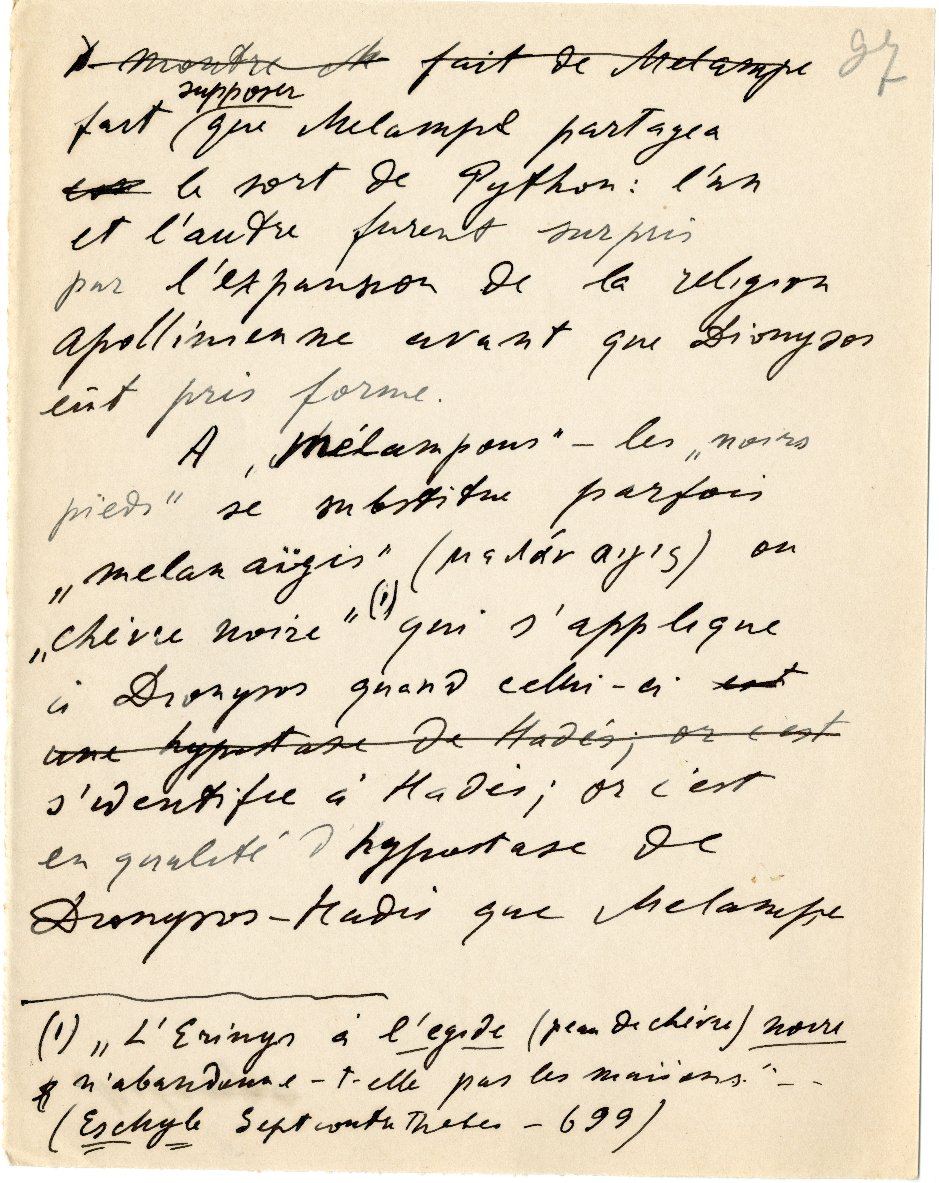 97
montre fait de Melampe
supposer
fait que Melampe partagea
le sort de Python: l'un
et l'autre furent surpris
par l'expansion de la religion
apollinienne avant que Dionysos
eût pris forme.
A „Mélampous" – les „noirs
pieds" se substitue parfois
„melan aïgis" (μαλάν αιγις) ou
„chèvre noire" (1) qui s'applique
à Dionysos quand celui-ci est
une hypostase de Hadès; or c'est
s'identifie à Hadès; or c'est
en qualité d'hypostase de
Dionysos-Hadès que Melampe
(1) „L'Erinys à l'égide (peau de chèvre) noire
n'abandonne-t-elle pas les maisons." – –
(Eschyle Sept contre Thebes – 699)